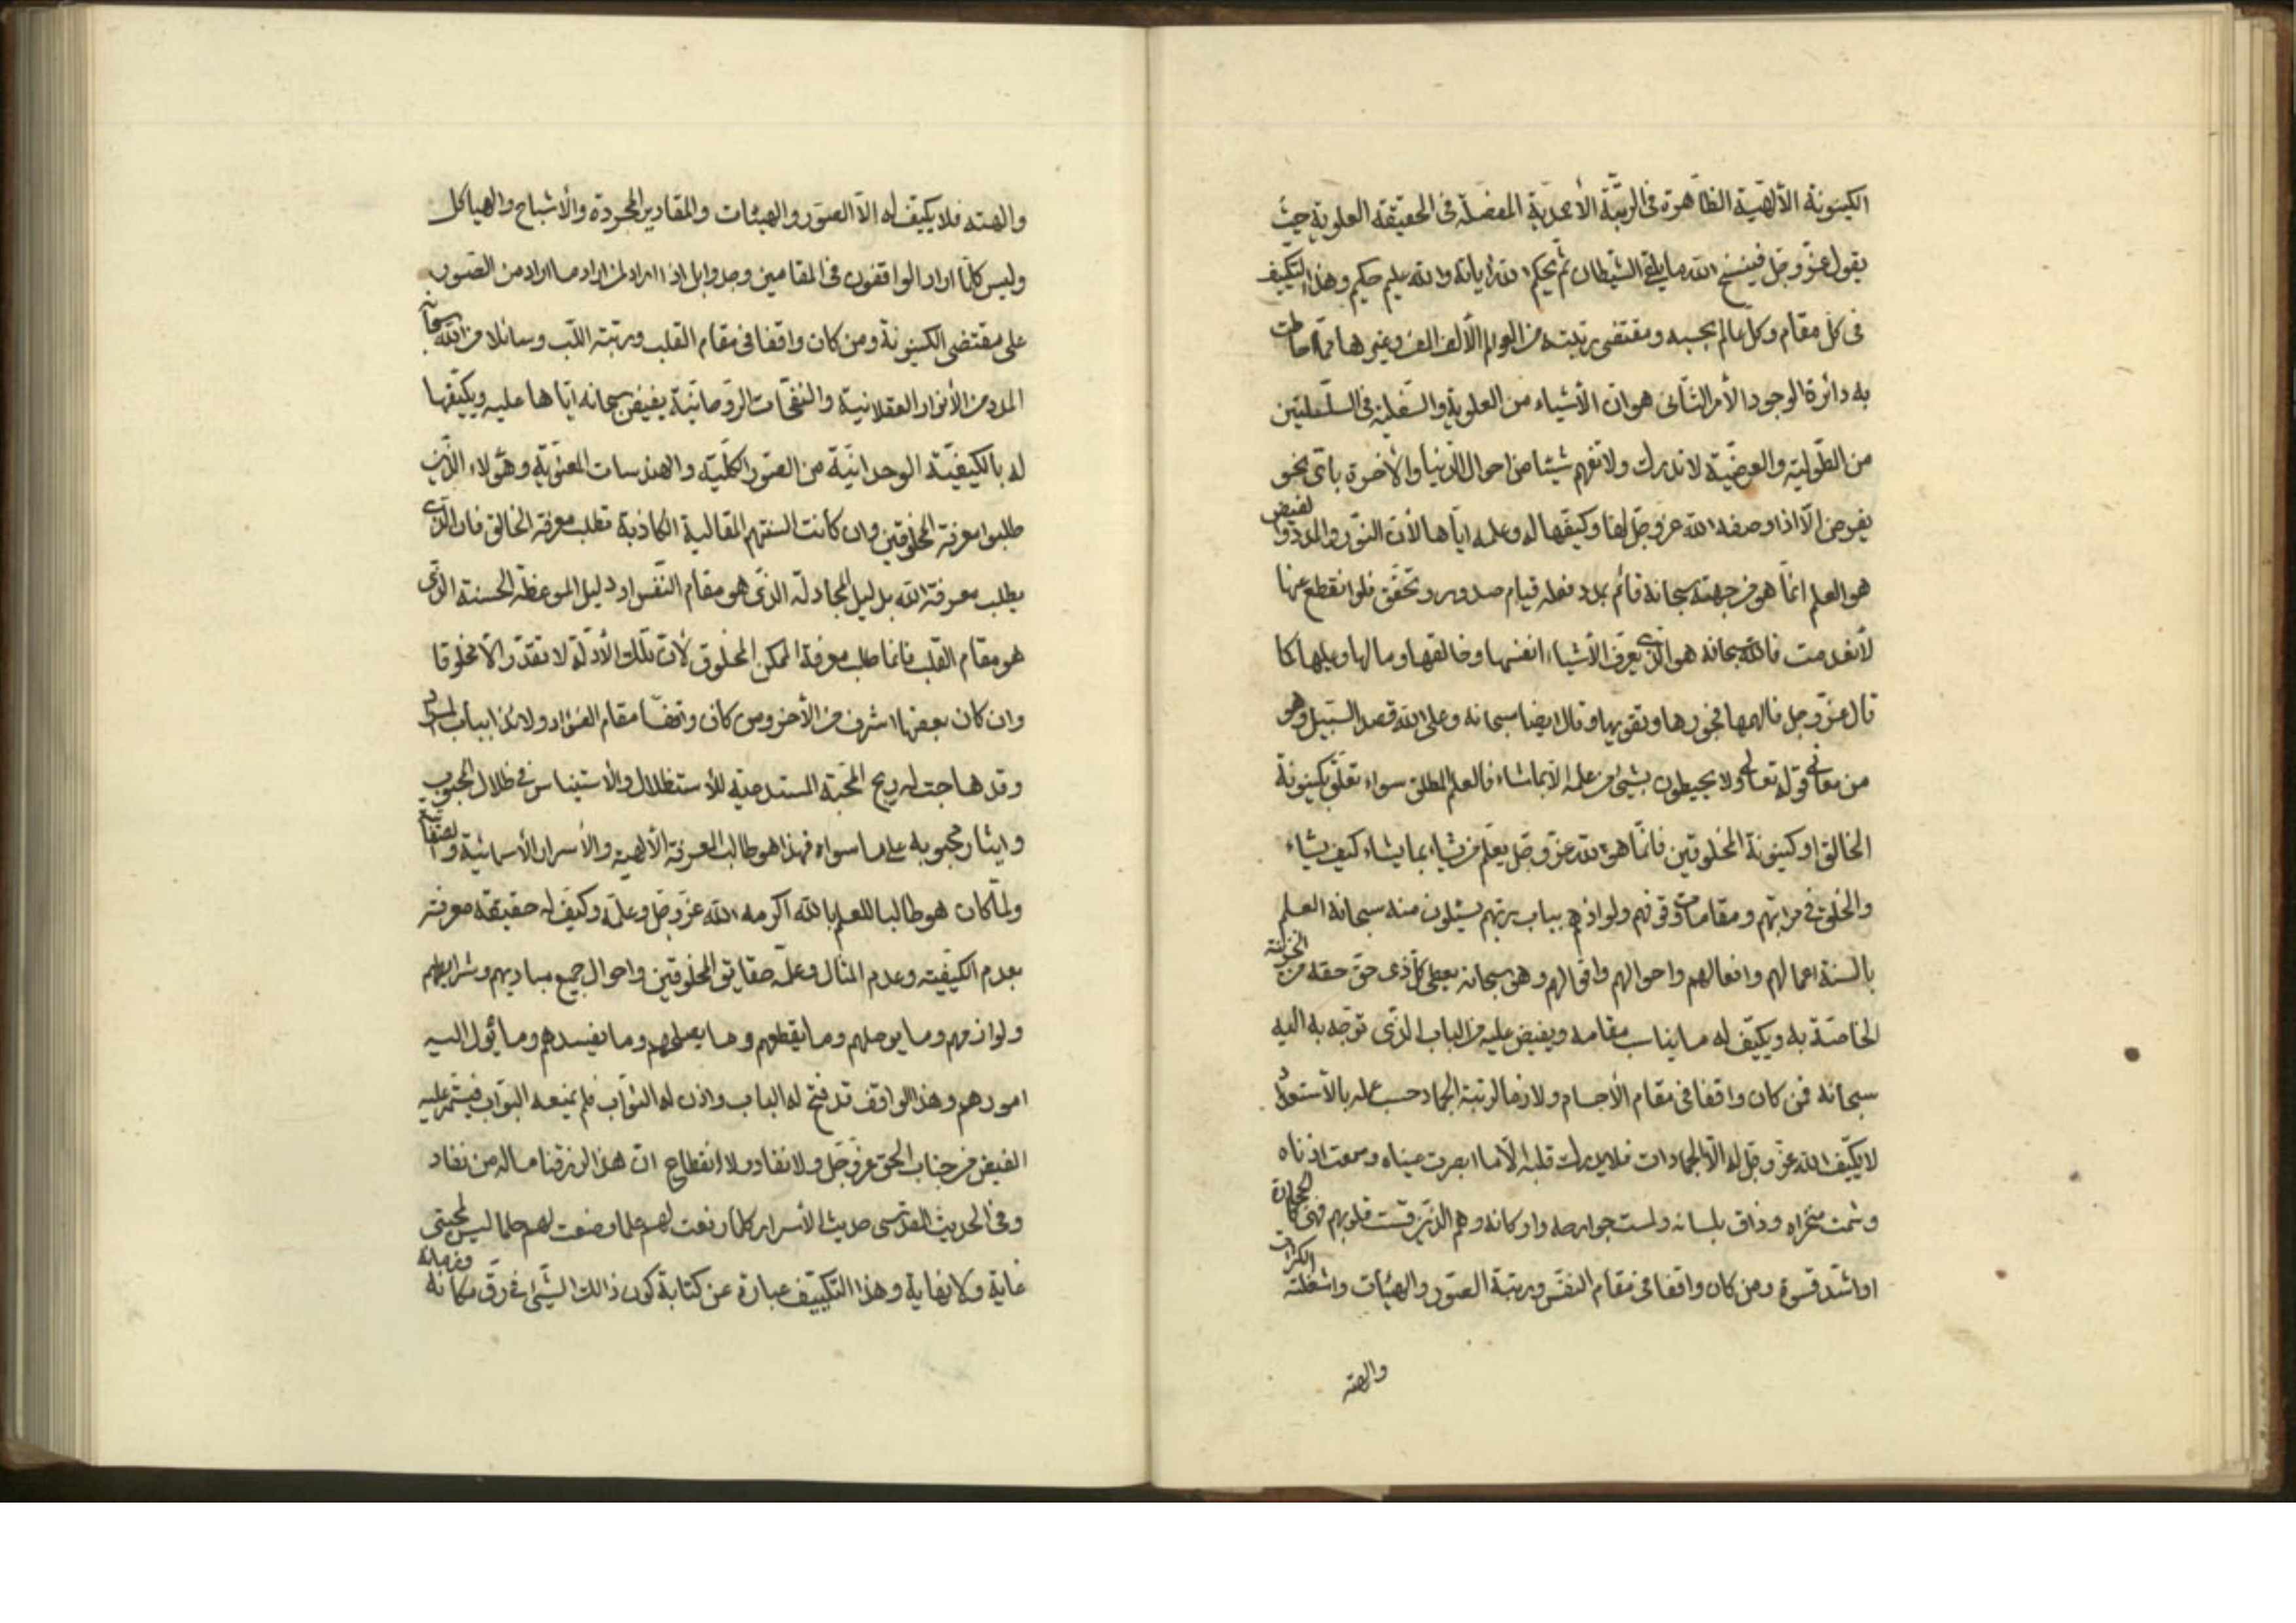 الكينونة الألهية الظاهرة في الرتبة الأحمدية المفصلة في الحقيقة العلوية حيث
يقول عز وجل فينسخ الله ما يلقي الشيطان ثم يحكم الله اياته والله عليم حكيم وهذا التكييف
في كل مقام وكل عالم بحسبه ومقتضى رتبته من العوالم الألف الف وغيرها مما احاطت
به دائرة الوجود الأمر الثاني هو ان الأشياء من العلوية والسفلية في السلسلتين
من الطولية والعرضية لا تدرك ولا تفهم شيئا من احوال الدنيا والأخرة باي نحو
يفرض الا اذا وصفه الله عز وجل لها وكيفها له وعلمه اياها لأن النور والمدد والفيض
هو العلم انما هو من جهته سبحانه قائم بمدد فعله قيام صدور وتحقق فلو انقطع عنها
لأنعدمت فالله سبحانه هو الذي يعرف الأشياء انفسها وخالقها وما لها وعليها كما
قال عز وجل فالهمها فجورها وتقويها وقال ايضا سبحانه وعلى الله قصد السبيل وهو
من معاني قوله تعالى ولا يحيطون بشيئ من علمه الا بما شاء فالعلم المطلق سواء تعلق بكينونة
الخالق او كينونة المخلوقين فانما هو الله عز وجل يعلم من يشاء بما يشاء كيف يشاء
والخلق في مراتبهم ومقامات وقوفهم ولواذهم بباب ربهم يسئلون منه سبحانه العلم
بالسنة اعمالهم وافعالهم واحوالهم واقوالهم وهو سبحانه يعطي كل ذي حق حقه من الخزينة
الخاصة به ويكيف له ما يناسب مقامه ويفيض عليه من الباب الذي توجه به اليه
سبحانه فمن كان واقفا في مقام الأجسام ولازما لرتبة الجماد حسب عمله بالأستعداد
لا يكيف الله عز وجل له الا الجمادات فلا يدرك قلبه الا ما ابصرت عيناه وسمعت اذناه
وشمت منخراه وذاق بلسانه ولمست جوارحه واركانه وهم الذين قست قلوبهم فهي كالحجارة
او اشد قسوة ومن كان واقفا في مقام النفس ورتبة الصور والهيئات واشغلته الكثرات
والهته
والهته فلا يكيف له الا الصور والهيئات والمقادير المجردة والأشباح والهياكل
وليس كلما اراد الواقفون في المقامين وجدوا بل اذا اراد لمن اراد ما اراد من الصور
على مقتضى الكينونة ومن كان واقفا في مقام القلب ورتبة اللب وسائلا من الله سبحانه
المدد من الأنوار العقلانية والنفحات الروحانية يفيض سبحانه اياها عليه ويكيفها
له بالكيفية الوحدانية من الصور الكلية والهندسات المعنوية وهؤلاء الذين
طلبوا معرفة المخلوقين وان كانت السنتهم المقالية الكاذبة تطلب معرفة الخالق فان الذي
يطلب معرفة الله بدليل المجادلة الذي هو مقام النفس او دليل الموعظة الحسنة الذي
هو مقام القلب فانما طلب معرفة الممكن المخلوق لأن تلك الأدلة لا تقدر الا مخلوقا
وان كان بعضها اشرف من الأخر ومن كان واقفا مقام الفؤاد ولائذا بباب المراد
وقد هاجت له ريح المحبة المستدعية للأستظلال والأستيناس في ظلال المحبوب
وايثار محبوبه على ما سواه فهذا هو طالب المعرفة الألهية والأسرار الأسمائية والصفاتية
ولما كان هو طالبا للعلم بالله اكرمه الله عز وجل وعلمه وكيف له حقيقة معرفته
بعدم الكيفية وعدم المثال وعلمه حقايق المخلوقين واحوال جميع مباديهم وشرايطهم
ولوازمهم وما يوصلهم وما يقطعهم وما يصلحهم وما يفسدهم وما يؤل اليه
امورهم وهذا الواقف قد فتح له الباب واذن له التواب فلم يمنعه البواب فيستمر عليه
الفيض من جناب الحق عز وجل ولا نفاد ولا انقطاع ان هذا لرزقنا ماله من نفاد
وفي الحديث القدسي حديث الأسرار كلما رفعت لهم علما وضعت لهم حلما ليس لمحبتي
غاية ولا نهاية وهذا التكييف عبارة عن كتابة كون ذالك الشيئ في رق مكانه وزمانه